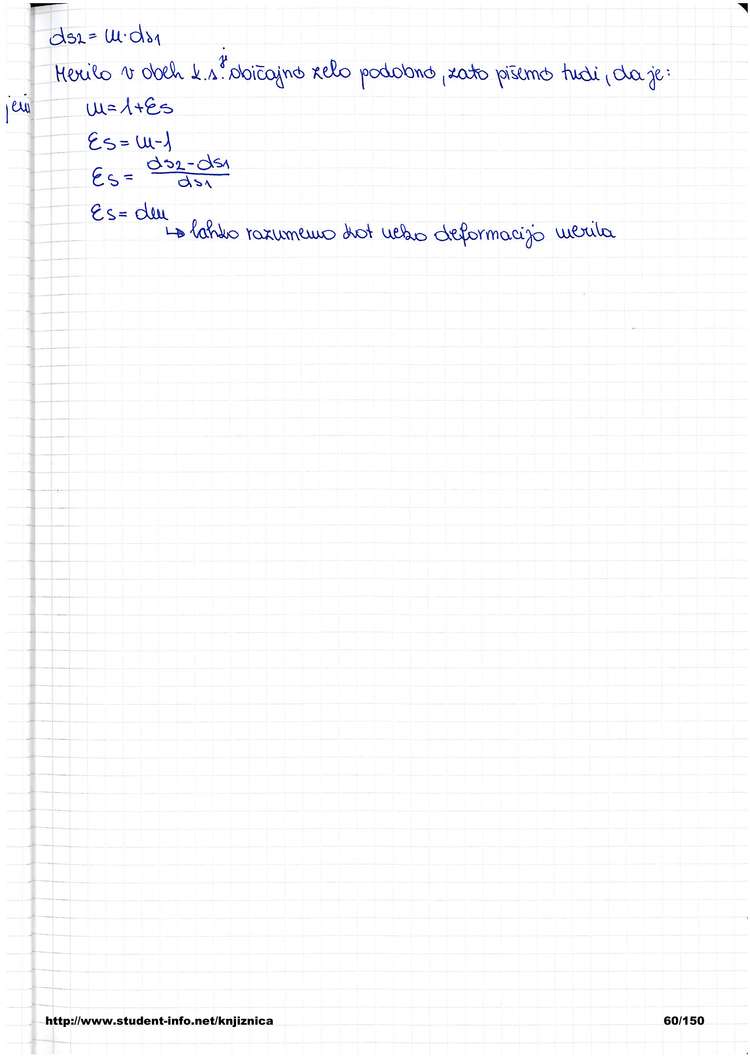 ds2 = m·ds1
Merilo v obeh k.s. je običajno zelo podobno, zato pišemo tudi, da je:
m = 1+εs
εs = m-1
εs = (ds2-ds1)/ds1
εs = dm
↳ lahko razumemo kot neko deformacijo merila
http://www.student-info.net/knjiznica 60/150